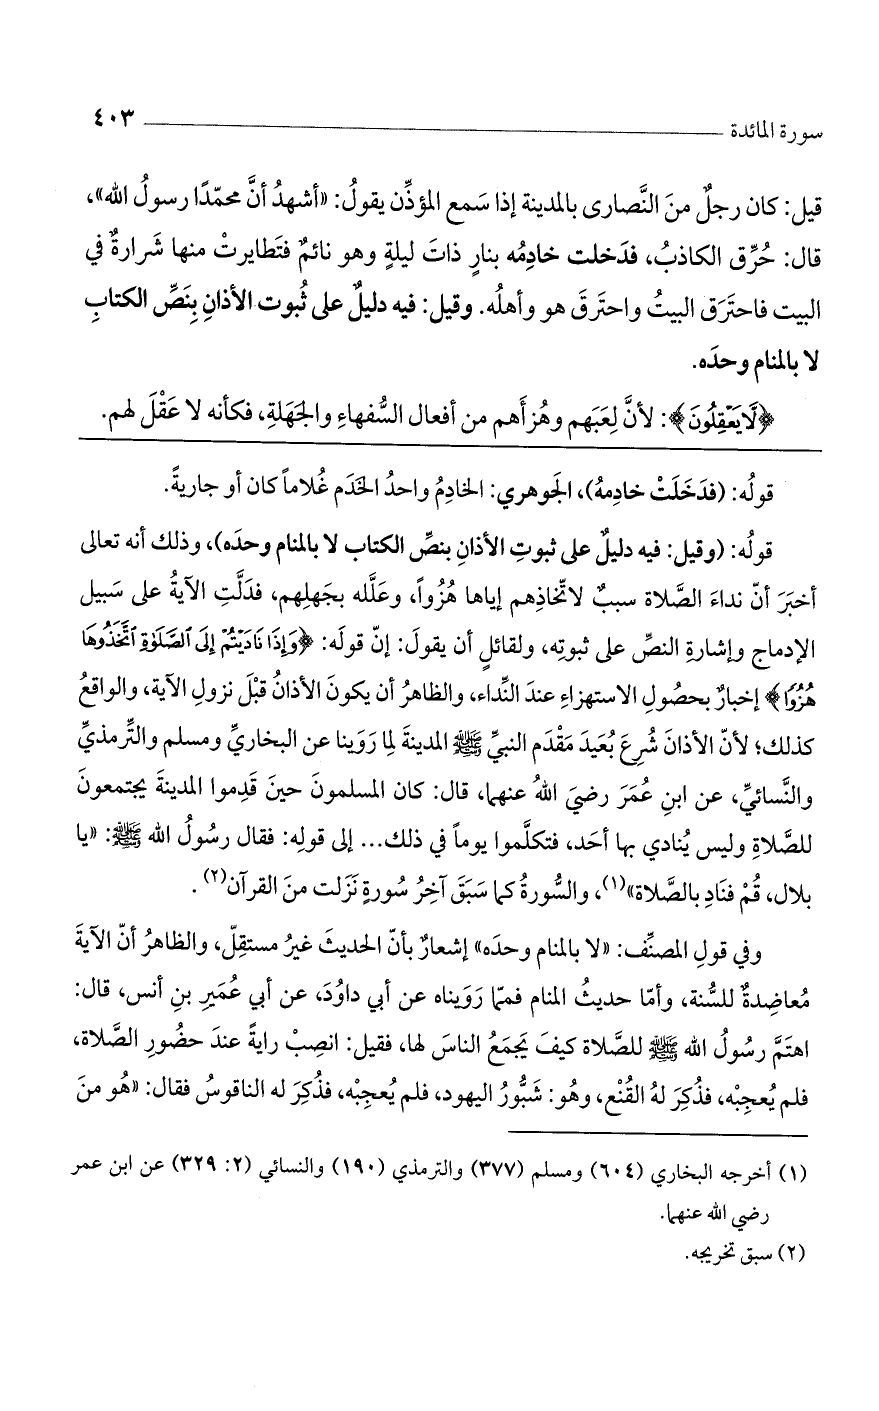 سورة المائدة ٤٠٣
قيل: كان رجلٌ منَ النَّصارى بالمدينة إذا سَمع المؤذِّن يقولُ: «أشهدُ أنَّ محمّدًا رسولُ الله»،
قال: حُرِّق الكاذبُ، فدَخلت خادِمُه بنارٍ ذاتَ ليلةٍ وهو نائمٌ فتَطايرتْ منها شَرارةٌ في
البيت فاحتَرَق البيتُ واحترقَ هو وأهلُه. وقيل: فيه دليلٌ على ثُبوت الأذانِ بِنَصِّ الكتابِ
لا بالمنام وحدَه.
﴿لَّا يَعْقِلُونَ﴾: لأنَّ لِعَبَهم وهُزأَهم من أفعال السُّفهاءِ والجَهَلةِ، فكأنه لا عَقْلَ لهم.
قولُه: (فدَخَلَتْ خادِمهُ)، الجَوهري: الخادِمُ واحدُ الخَدَم غُلاماً كان أو جاريةً.
قولُه: (وقيل: فيه دليلٌ على ثبوتِ الأذانِ بنصِّ الكتاب لا بالمنام وحدَه)، وذلك أنه تعالى
أخبَرَ أنّ نداءَ الصَّلاة سببٌ لاتّخاذِهم إياها هُزُواً، وعَلَّله بجَهلِهم، فدَلَّتِ الآيةُ على سَبيل
الإدماج وإشارةِ النصِّ على ثبوتِه، ولقائلٍ أن يقولَ: إنّ قولَه: ﴿وَإِذَا نَادَيْتُمْ إِلَى ٱلصَّلَوٰةِ ٱتَّخَذُوهَا
هُزُوًا﴾ إخبارٌ بحصُولِ الاستهزاءِ عندَ النِّداء، والظاهرُ أن يكونَ الأذانُ قبْلَ نزولِ الآية، والواقعُ
كذلك؛ لأنّ الأذانَ شُرِعَ بُعَيدَ مَقْدَم النبيِّ ﷺ المدينةَ لِما رَوَينا عن البخاريِّ ومسلم والتِّرمذيِّ
والنَّسائيِّ، عن ابنِ عُمَرَ رضيَ اللهُ عنهما، قال: كان المسلمونَ حينَ قَدِموا المدينةَ يجتمعونَ
للصَّلاةِ وليس يُنادي بها أحَد، فتكلَّموا يوماً في ذلك... إلى قولِه: فقال رسُولُ الله ﷺ: «يا
بلال، قُمْ فنَادِ بالصَّلاة»(١)، والسُّورةُ كما سَبَقَ آخِرُ سُورةٍ نَزَلت منَ القرآن(٢).
وفي قولِ المصنِّف: «لا بالمنام وحدَه» إشعارٌ بأنّ الحديثَ غيرُ مستقِلّ، والظاهرُ أنّ الآيةَ
مُعاضِدةٌ للسُّنة، وأمّا حديثُ المنام فممّا رَوَيناه عن أبي داوُدَ، عن أبي عُمَيرِ بنِ أنس، قال:
اهتَمَّ رسُولُ الله ﷺ للصَّلاة كيفَ يَجمَعُ الناسَ لها، فقيل: انصِبْ رايةً عندَ حضُورِ الصَّلاة،
فلم يُعجِبْه، فذُكِرَ لهُ القُنْع، وهُو: شَبُّورُ اليهود، فلم يُعجِبْه، فذُكِرَ له الناقوسُ فقال: «هُو منَ
(١) أخرجه البخاري (٦٠٤) ومسلم (٣٧٧) والترمذي (١٩٠) والنسائي (٢: ٣٢٩) عن ابن عمر
رضي الله عنهما.
(٢) سبق تخريجه.